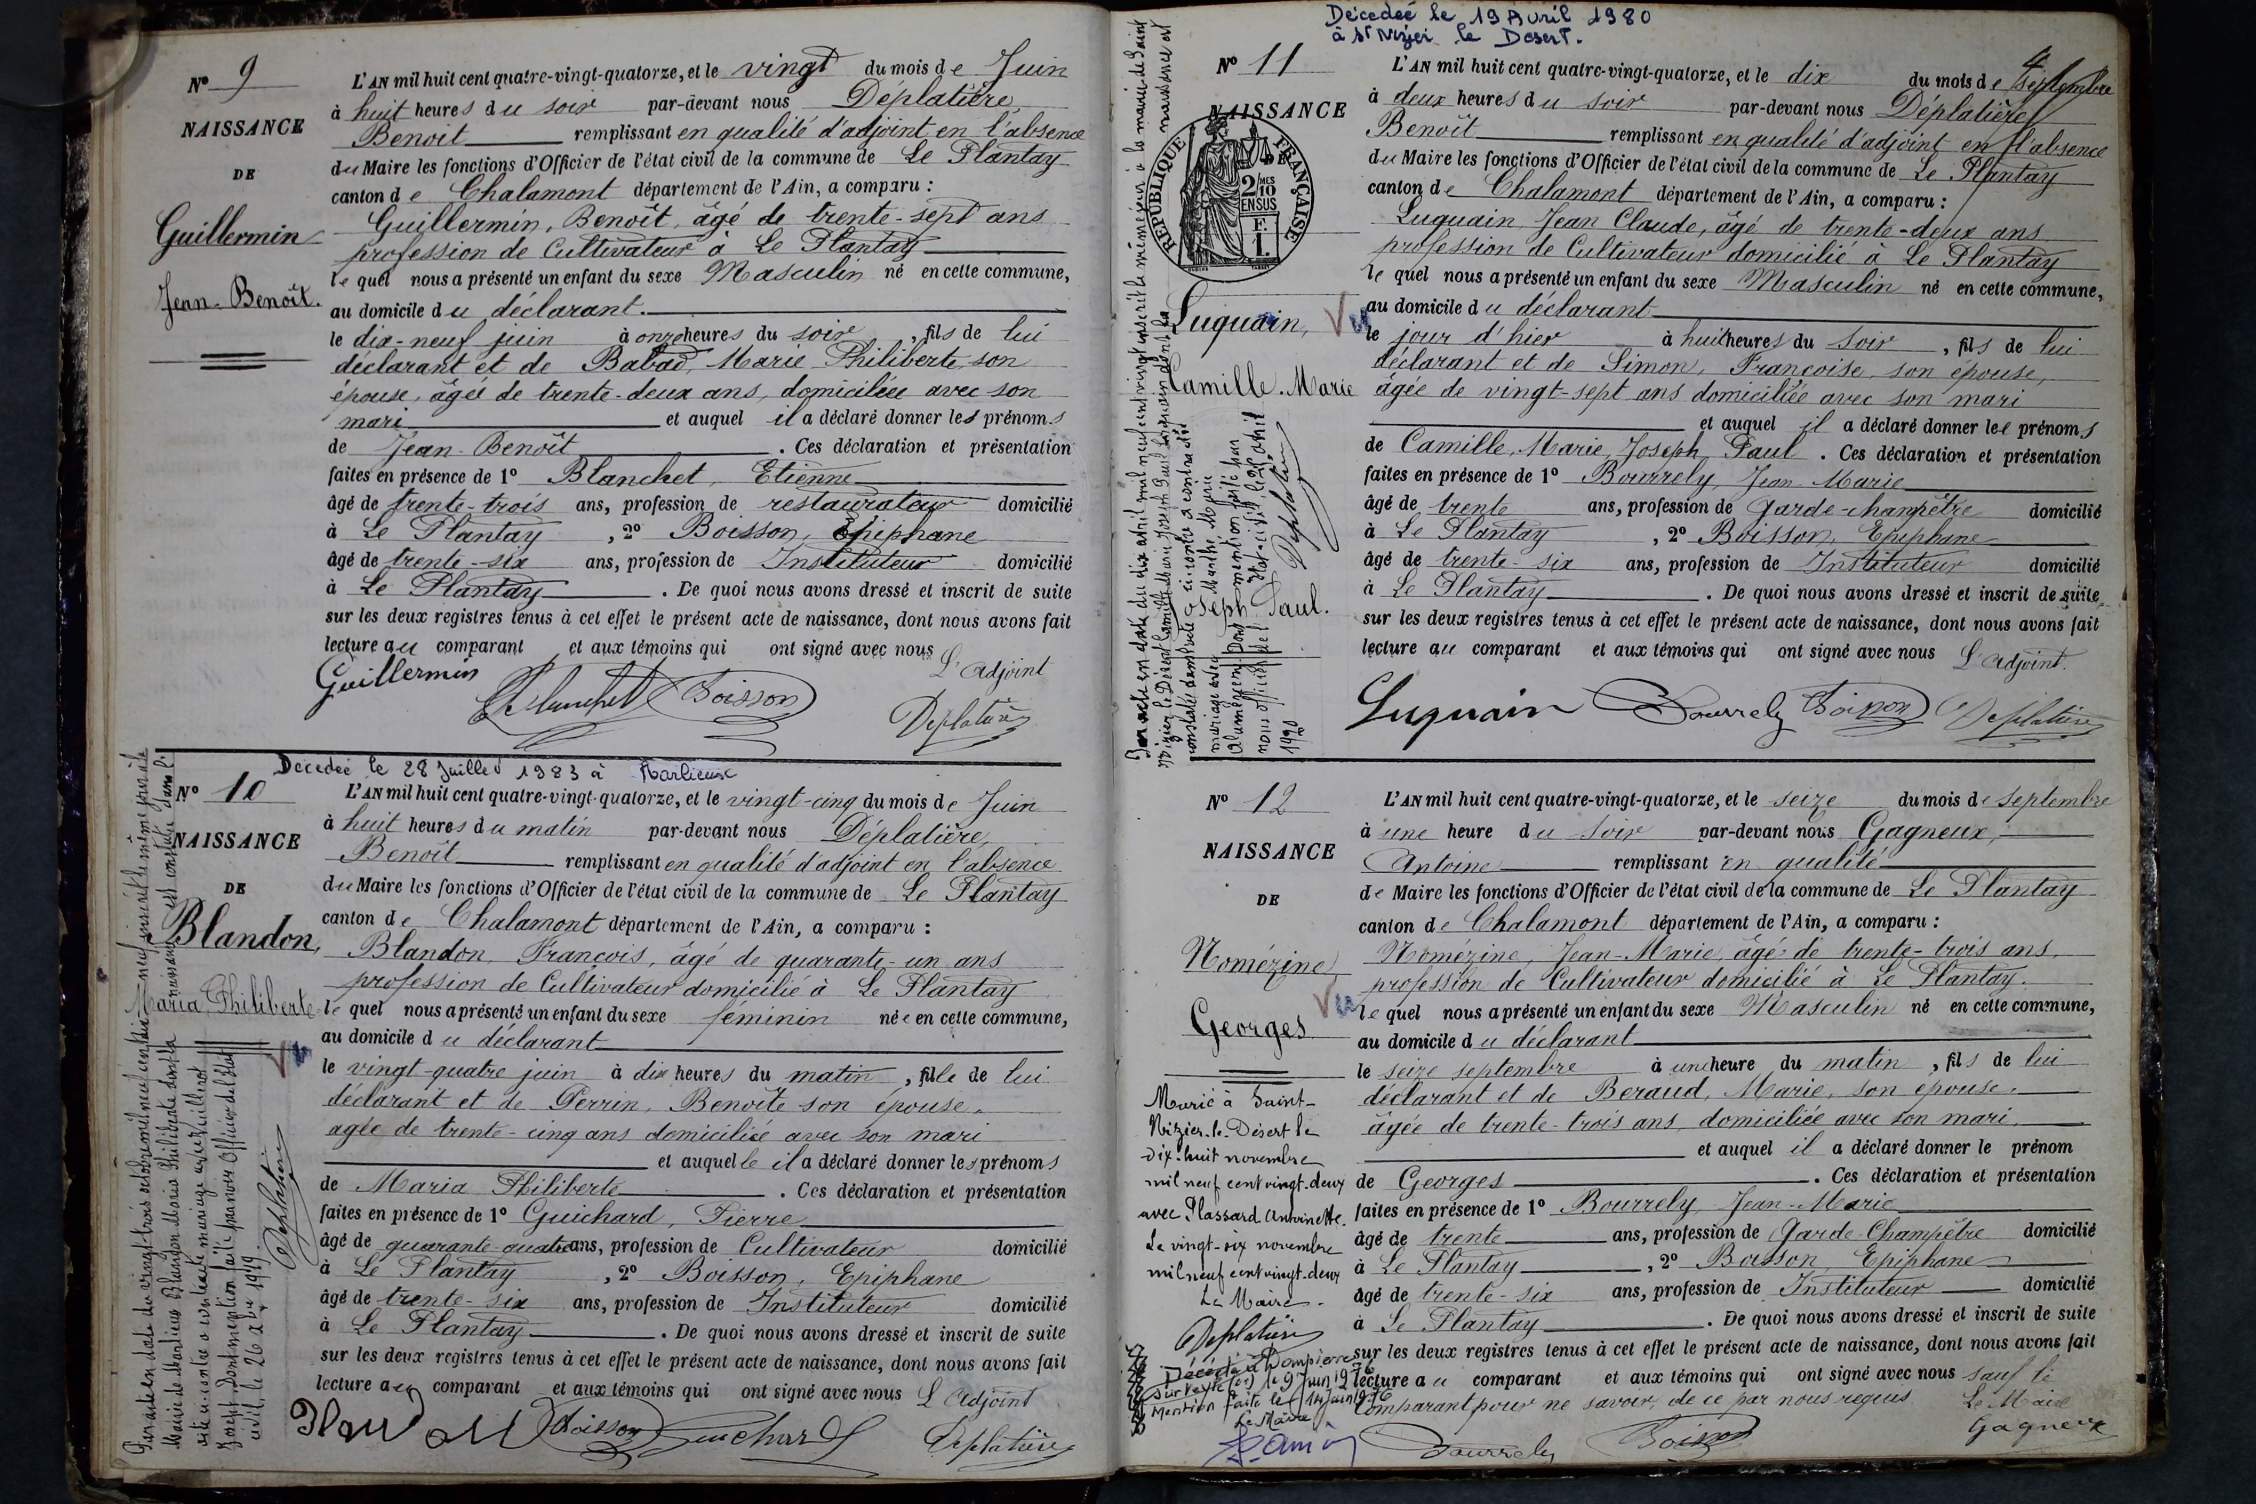 Nº 9
NAISSANCE
DE
Guillermin
Jean-Benoît.
L'AN mil huit cent quatre-vingt-quatorze, et le vingt du mois de Juin
à huit heures du soir par-devant nous Déplatière,
Benoit remplissant en qualité d'adjoint en l'absence
du Maire les fonctions d'Officier de l'état civil de la commune de Le Plantay
canton de Chalamont département de l'Ain, a comparu :
Guillermin, Benoît, âgé de trente-sept ans
profession de Cultivateur à Le Plantay
le quel nous a présenté un enfant du sexe Masculin né en cette commune,
au domicile du déclarant
le dix-neuf juin à onze heures du soir, fils de lui
déclarant et de Babad, Marie Philiberte, son
épouse, âgée de trente-deux ans, domiciliée avec son
mari et auquel il a déclaré donner les prénoms
de Jean-Benoît . Ces déclaration et présentation
faites en présence de 1º Blanchet, Etienne
âgé de trente-trois ans, profession de restaurateur domicilié
à Le Plantay , 2º Boisson, Epiphane
âgé de trente-six ans, profession de Instituteur domicilié
à Le Plantay . De quoi nous avons dressé et inscrit de suite
sur les deux registres tenus à cet effet le présent acte de naissance, dont nous avons fait
lecture au comparant et aux témoins qui ont signé avec nous L'adjoint
Guillermin Blanchet Boisson Déplatière
Décédée le 28 Juillet 1983 à Marlieux
Nº 10
NAISSANCE
DE
Blandon,
Maria Philiberte
Vu
L'AN mil huit cent quatre-vingt-quatorze, et le vingt-cinq du mois de Juin
à huit heures du matin par-devant nous Déplatière,
Benoit remplissant en qualité d'adjoint en l'absence
du Maire les fonctions d'Officier de l'état civil de la commune de Le Plantay
canton de Chalamont département de l'Ain, a comparu :
Blandon, François, âgé de quarante-un ans
profession de Cultivateur domicilié à Le Plantay
le quel nous a présenté un enfant du sexe féminin née en cette commune,
au domicile du déclarant
le vingt-quatre juin à dix heures du matin, fille de lui
déclarant et de Perrin, Benoîte son épouse,
agée de trente-cinq ans domiciliée avec son mari
et auquelle il a déclaré donner les prénoms
de Maria Philiberte . Ces déclaration et présentation
faites en présence de 1º Guichard, Pierre
âgé de quarante-quatre ans, profession de Cultivateur domicilié
à Le Plantay , 2º Boisson, Epiphane
âgé de trente-six ans, profession de Instituteur domicilié
à Le Plantay . De quoi nous avons dressé et inscrit de suite
sur les deux registres tenus à cet effet le présent acte de naissance, dont nous avons fait
lecture au comparant et aux témoins qui ont signé avec nous L'adjoint
Blandon Boisson Guichard Déplatière
civil, le 26 xbre 1919.
Déplatière
Décedeé le 19 Avril 1980
à St Nizier le Desert.
Nº 11
NAISSANCE
DE
RÉPUBLIQUE FRANÇAISE
2/10 MES
EN SUS
F.
1.
Luquain,
Camille-Marie
Joseph Paul.
Vu
L'AN mil huit cent quatre-vingt-quatorze, et le dix du mois de Septembre
à deux heures du soir par-devant nous Déplatière
Benoît remplissant en qualité d'adjoint en l'absence
du Maire les fonctions d'Officier de l'état civil de la commune de Le Plantay
canton de Chalamont département de l'Ain, a comparu :
Luquain, Jean Claude, âgé de trente-deux ans
profession de Cultivateur domicilié à Le Plantay
le quel nous a présenté un enfant du sexe Masculin né en cette commune,
au domicile du déclarant
le jour d'hier à huit heures du soir, fils de lui
déclarant et de Simon, Françoise son épouse,
âgée de vingt-sept ans domiciliée avec son mari
et auquel il a déclaré donner les prénoms
de Camille, Marie, Joseph, Paul . Ces déclaration et présentation
faites en présence de 1º Bourrely, Jean-Marie
âgé de trente ans, profession de Garde-champêtre domicilié
à Le Plantay , 2º Boisson, Epiphane
âgé de trente-six ans, profession de Instituteur domicilié
à Le Plantay . De quoi nous avons dressé et inscrit de suite
sur les deux registres tenus à cet effet le présent acte de naissance, dont nous avons fait
lecture au comparant et aux témoins qui ont signé avec nous L'adjoint.
Luquain Bourrely Boisson Déplatière
Nº 12
NAISSANCE
DE
Nomézine
Georges
Vu
Marié à Saint-
Nizier-le-Désert le
dix-huit novembre
mil neuf cent vingt-deux
avec Plassard Antoinette.
Le vingt-six novembre
mil neuf cent vingt-deux
Le Maire.
Déplatière
Décédé à Dompierre
sur Veyle (01) le 9 Juin 1976
Mention faite le 14 Juin 1976
Le Maire
L'AN mil huit cent quatre-vingt-quatorze, et le seize du mois de septembre
à une heure du soir par-devant nous Gagneux,
Antoine remplissant en qualité
de Maire les fonctions d'Officier de l'état civil de la commune de Le Plantay
canton de Chalamont département de l'Ain, a comparu :
Nomézine, Jean-Marie, âgé de trente-trois ans,
profession de Cultivateur domicilié à Le Plantay.
le quel nous a présenté un enfant du sexe Masculin né en cette commune,
au domicile du déclarant
le seize septembre à une heure du matin, fils de lui
déclarant et de Beraud, Marie, son épouse,
âgée de trente-trois ans, domiciliée avec son mari,
et auquel il a déclaré donner le prénom
de Georges . Ces déclaration et présentation
faites en présence de 1º Bourrely, Jean-Marie
âgé de trente ans, profession de Garde-Champêtre domicilié
à Le Plantay , 2º Boisson, Epiphane
âgé de trente-six ans, profession de Instituteur domicilié
à Le Plantay . De quoi nous avons dressé et inscrit de suite
sur les deux registres tenus à cet effet le présent acte de naissance, dont nous avons fait
lecture au comparant et aux témoins qui ont signé avec nous sauf le
comparant pour ne savoir, de ce par nous requis Le Maire
Bourrely Boisson Gagneux